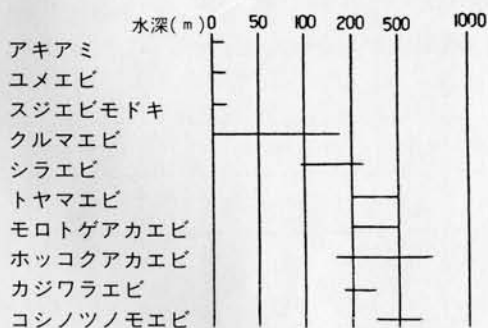 水深(m) 0 50 100 200 500 1000
アキアミ
ユメエビ
スジエビモドキ
クルマエビ
シラエビ
トヤマエビ
モロトゲアカエビ
ホッコクアカエビ
カジワラエビ
コシノツノモエビ